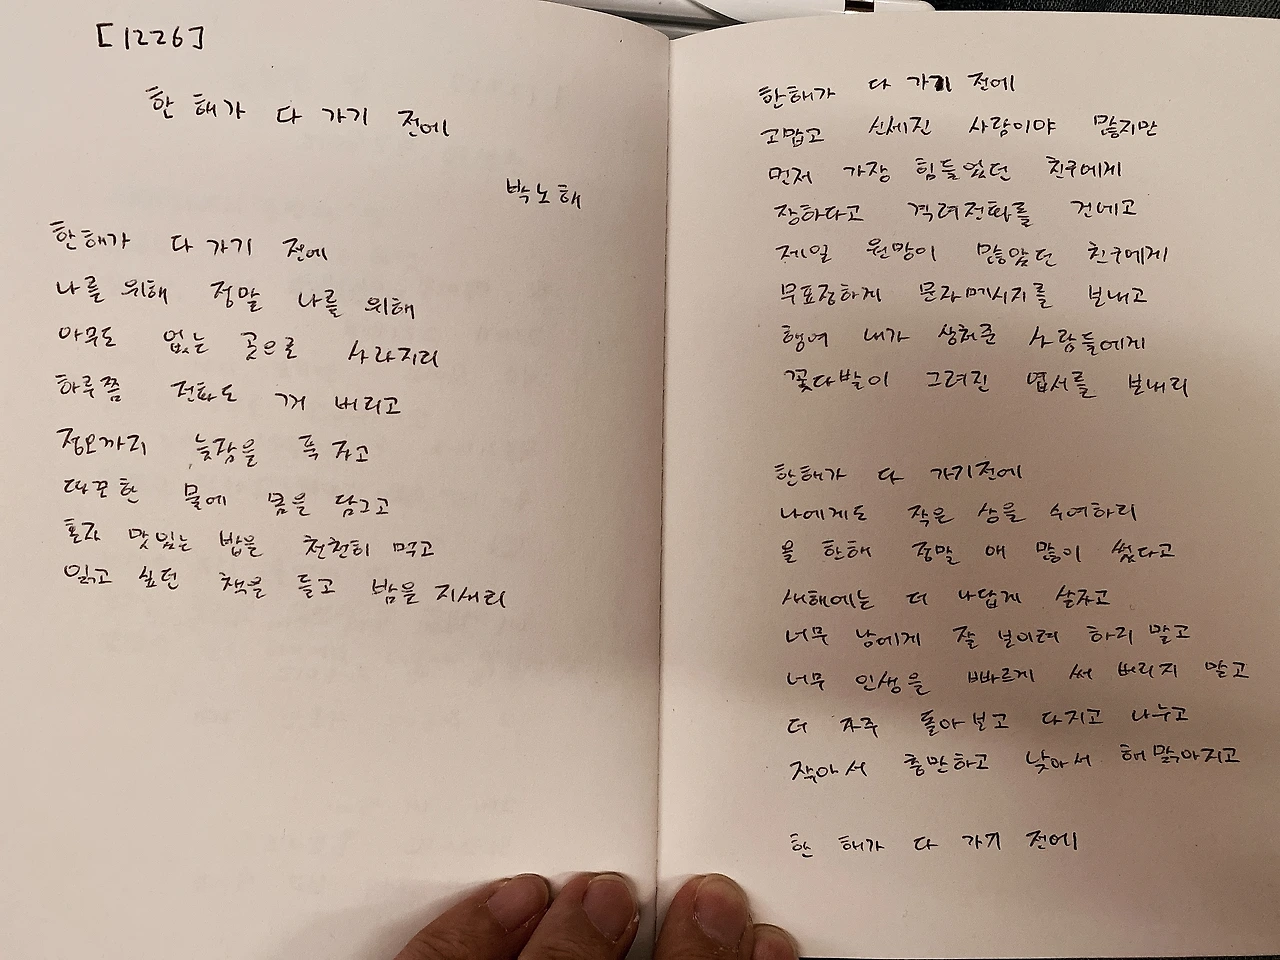 [1226]
한 해가 다 가기 전에
박노해
한해가 다 가기 전에
나를 위해 정말 나를 위해
아무도 없는 곳으로 사라지리
하루쯤 전파도 꺼 버리고
정오까지 늦잠을 푹 자고
따끈한 물에 몸을 담그고
혼자 맛있는 밥을 천천히 먹고
읽고 싶던 책을 들고 밤을 지새리
한해가 다 가기 전에
고맙고 신세진 사람이야 많지만
먼저 가장 힘들었던 친구에게
장하다고 격려전화를 건네고
제일 원망이 많았던 친구에게
무표정하게 문자메시지를 보내고
행여 내가 상처준 사람들에게
꽃다발이 그려진 엽서를 보내리
한해가 다 가기전에
나에게도 작은 상을 수여하리
올 한해 정말 애 많이 썼다고
새해에는 더 나답게 살자고
너무 남에게 잘 보이려 하지 말고
너무 인생을 빠르게 써 버리지 말고
더 자주 돌아보고 다지고 나누고
작아서 충만하고 낮아서 해맑아지고
한 해가 다 가기 전에